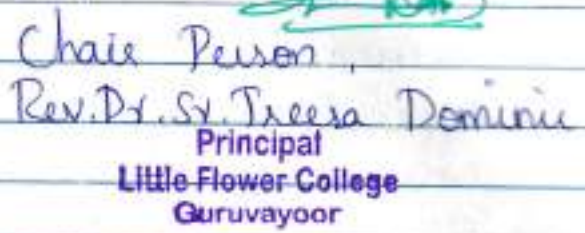 Chair Person,
Rev.Dr.Sr.Treesa Dominic
Principal
Little Flower College
Guruvayoor